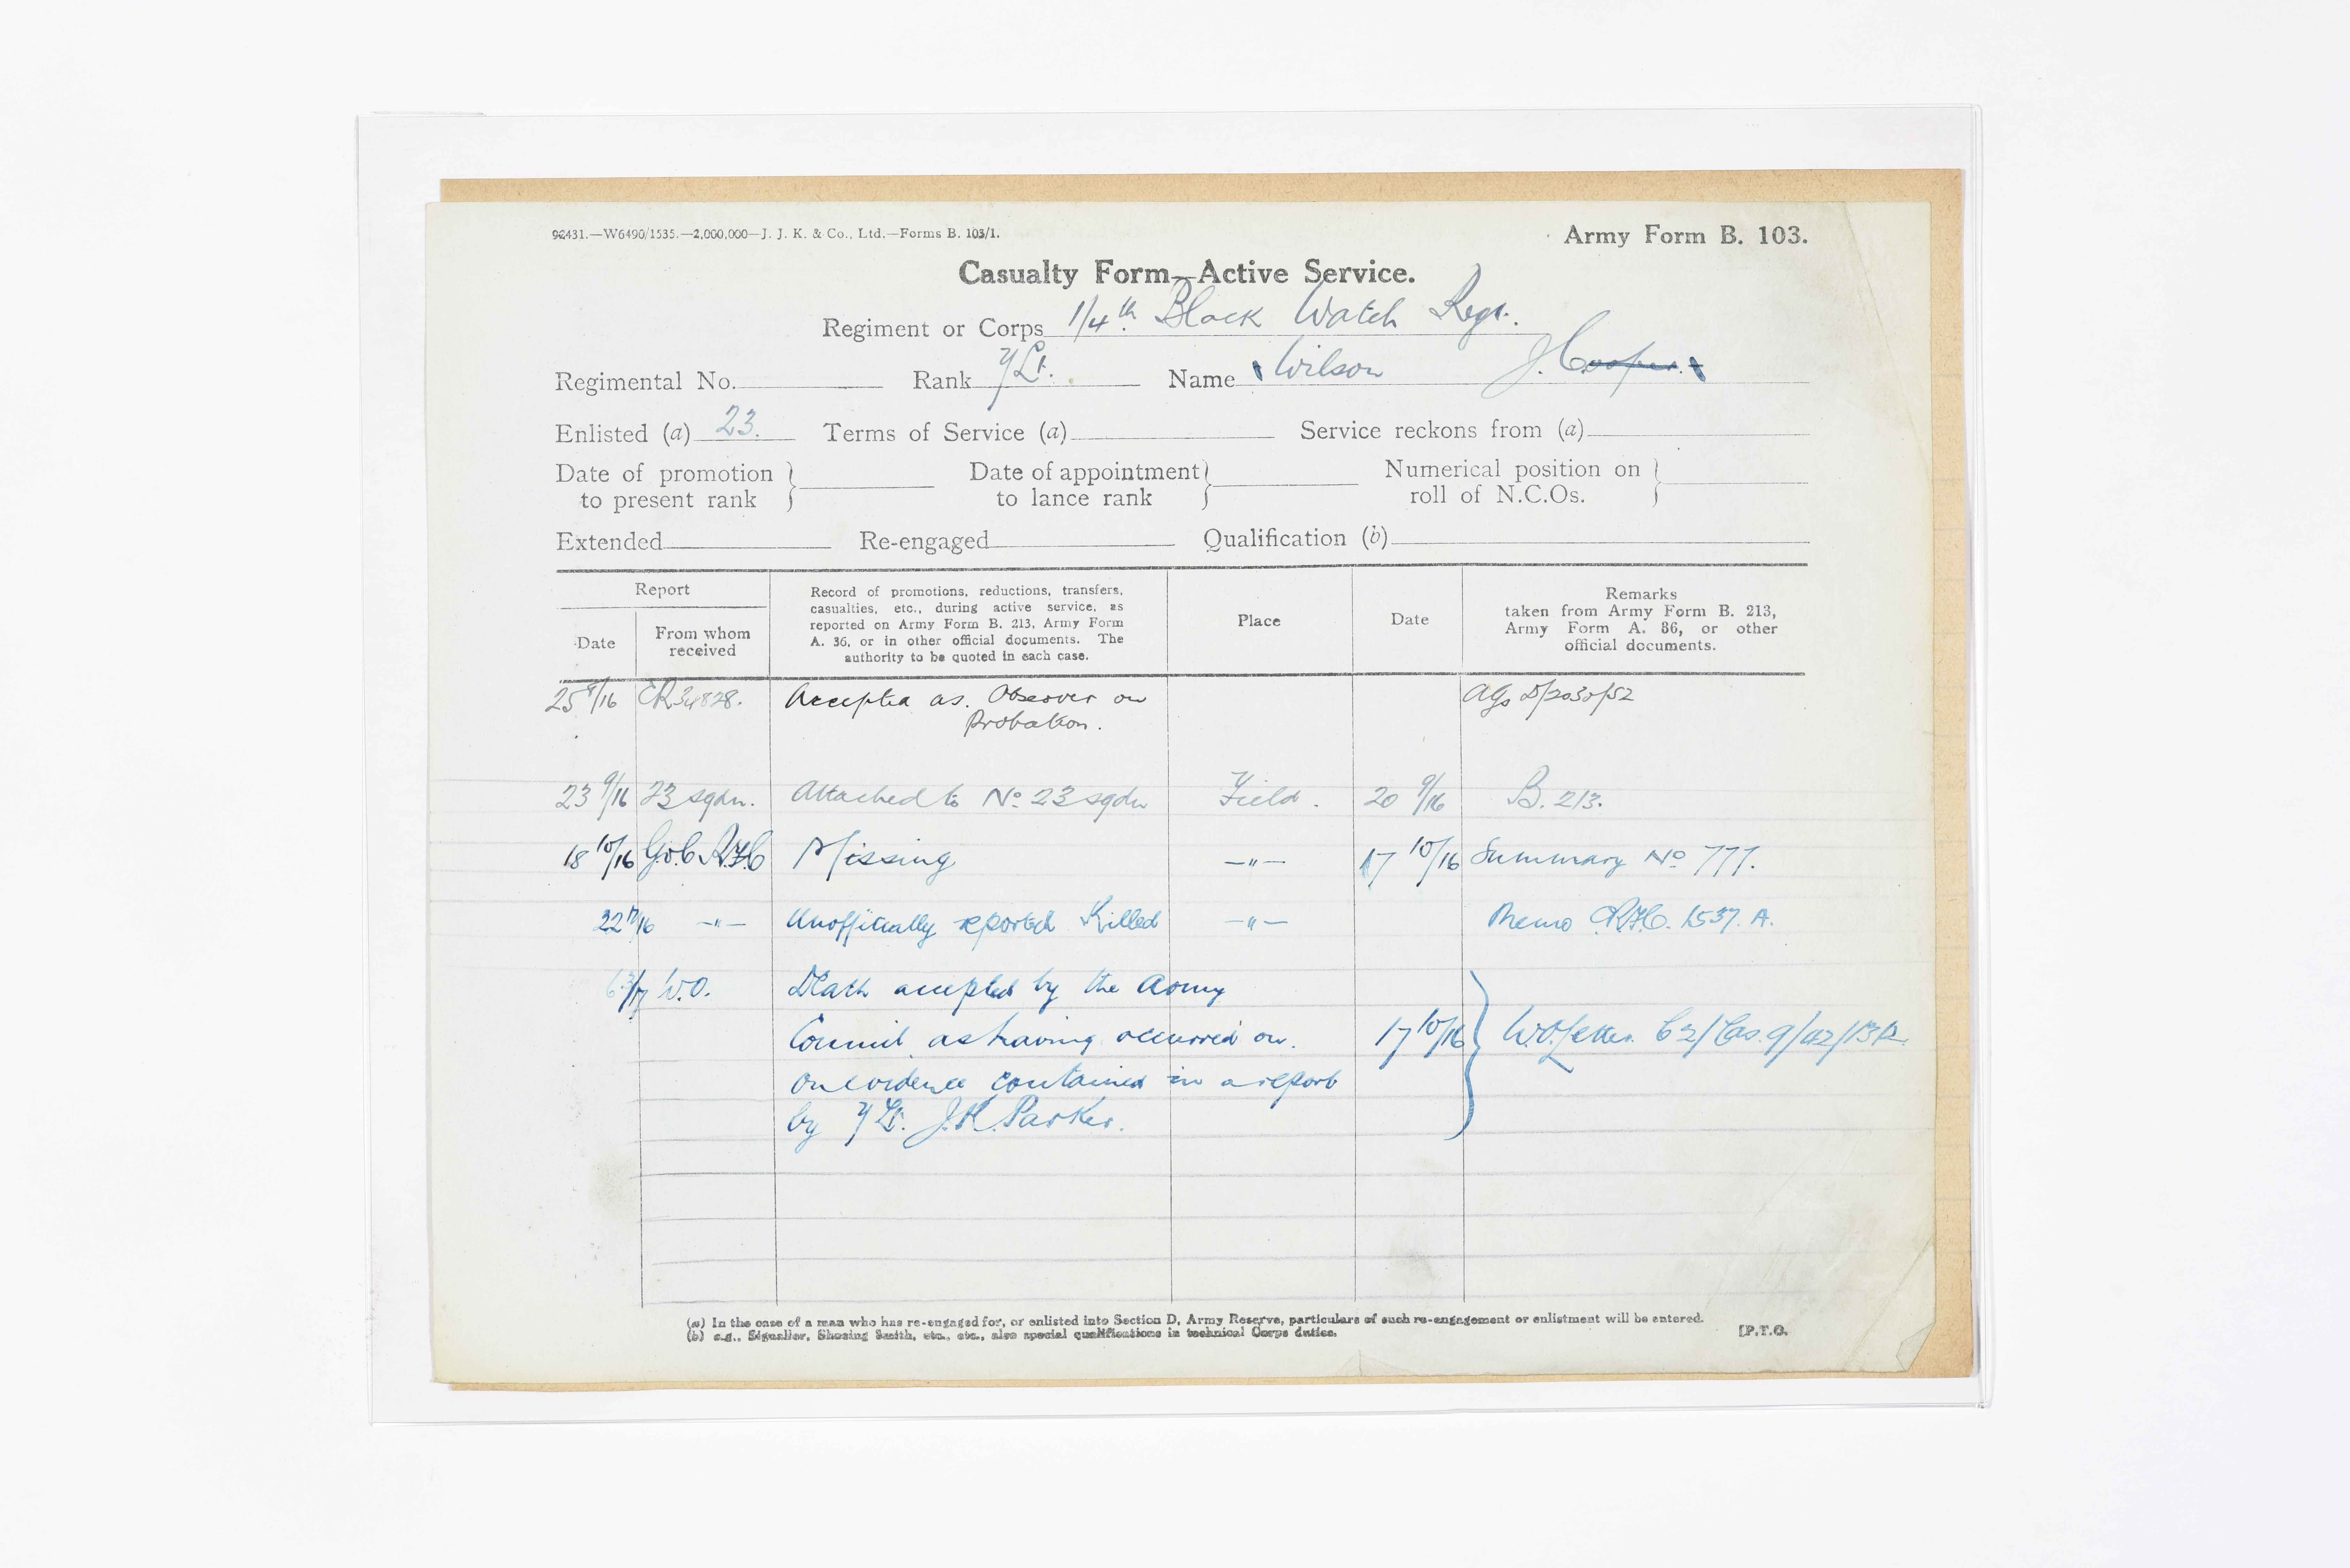 92431.—W6490/1535.—2,000,000—J. J. K. & Co., Ltd.—Forms B. 103/1.
Army Form B. 103.
Casualty Form—Active Service.
Regiment or Corps 1/4th Black Watch Regt.
Regimental No. Rank 2/Lt. Name Wilson J. Cooper.
Enlisted (a) 23. Terms of Service (a) Service reckons from (a)
Date of promotion to present rank } Date of appointment to lance rank } Numerical position on roll of N.C.Os. }
Extended Re-engaged Qualification (b)
Report
Date
From whom received
Record of promotions, reductions, transfers,
casualties, etc., during active service, as
reported on Army Form B. 213, Army Form
A. 36, or in other official documents. The
authority to be quoted in each case.
Place
Date
Remarks
taken from Army Form B. 213,
Army Form A. 36, or other
official documents.
Accepted as Observer on
Probation.
23 9/16 23 sqdn. Attached to No 23 sqdn Field. 20 9/16 B. 213.
18 10/16 G.O.C. R.F.C Missing —"— 17 10/16 Summary No 777.
—"— Unofficially reported Killed —"— Memo R.F.C. 1537. A.
W.O. Death accepted by the Army
Council as having occurred on. 17 10/16 } W.O. Letter.
on evidence contained in a report
by 2/Lt. J.K. Parker.
(a) In the case of a man who has re-engaged for, or enlisted into Section D, Army Reserve, particulars of such re-engagement or enlistment will be entered.
(b) e.g., Signaller, Shoeing Smith, etc., etc., also special qualifications in technical Corps duties.
[P.T.O.